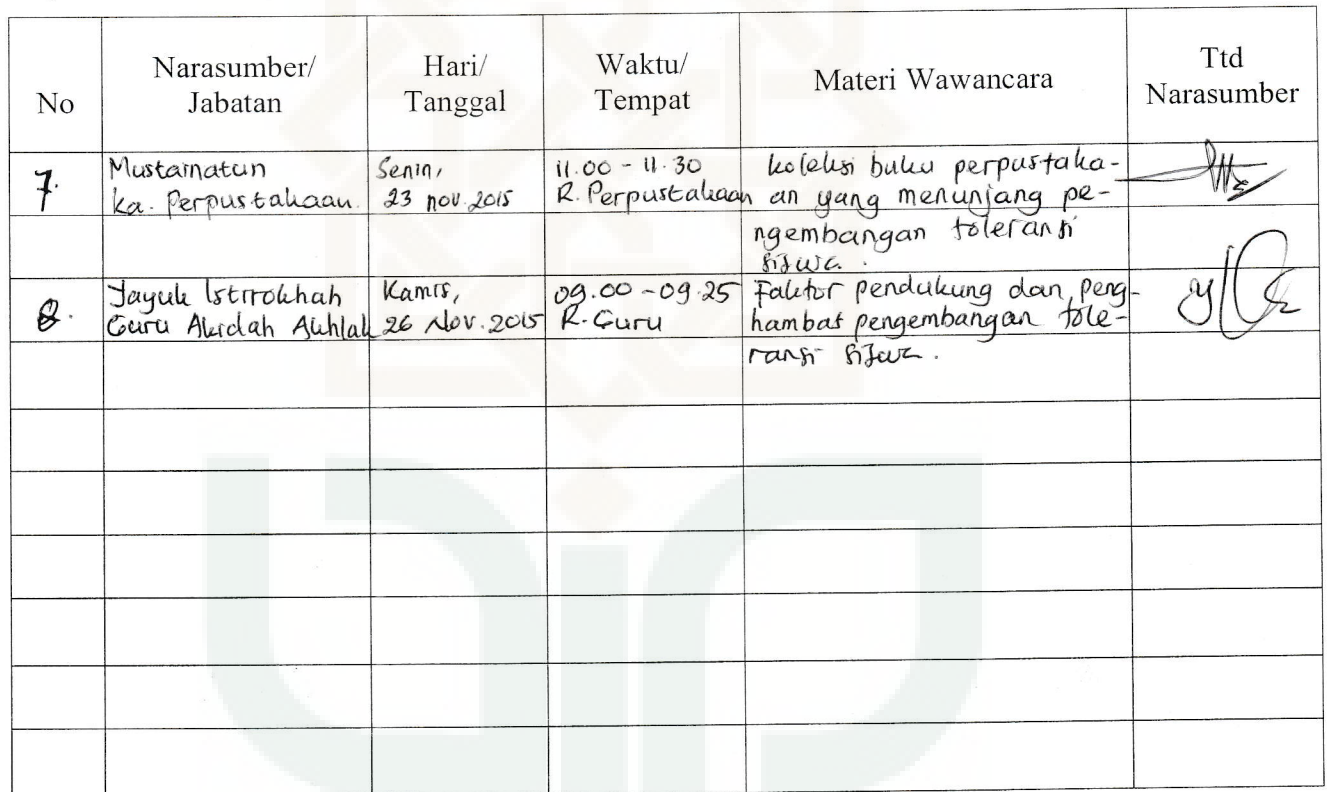 No
Narasumber/
Jabatan
Hari/
Tanggal
Waktu/
Tempat
Materi Wawancara
Ttd
Narasumber
7.
Mustainatun
Ka. Perpustakaan.
Senin,
23 nov. 2015
11.00 - 11.30
R. Perpustakaan
koleksi buku perpustaka-
an yang menunjang pe-
ngembangan toleransi
siswa.
8.
Yayuk Istirokhah
Guru Akidah Akhlak
Kamis,
26 Nov. 2015
09.00 - 09.25
R. Guru
Faktor pendukung dan peng-
hambat pengembangan tole-
ransi siswa.